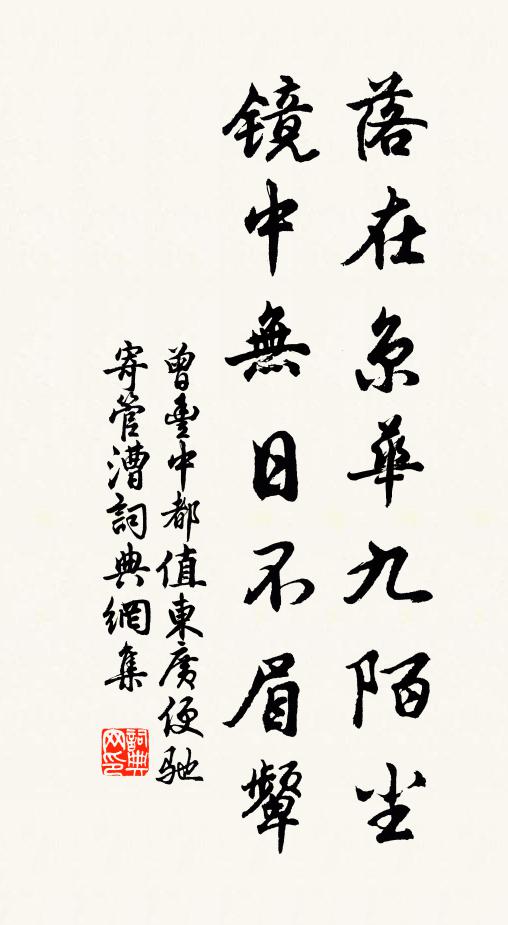 落在京華九陌塵
鏡中無日不眉顰
曾豐中都值東廣便馳
寄管漕詞典網集
詞典网印